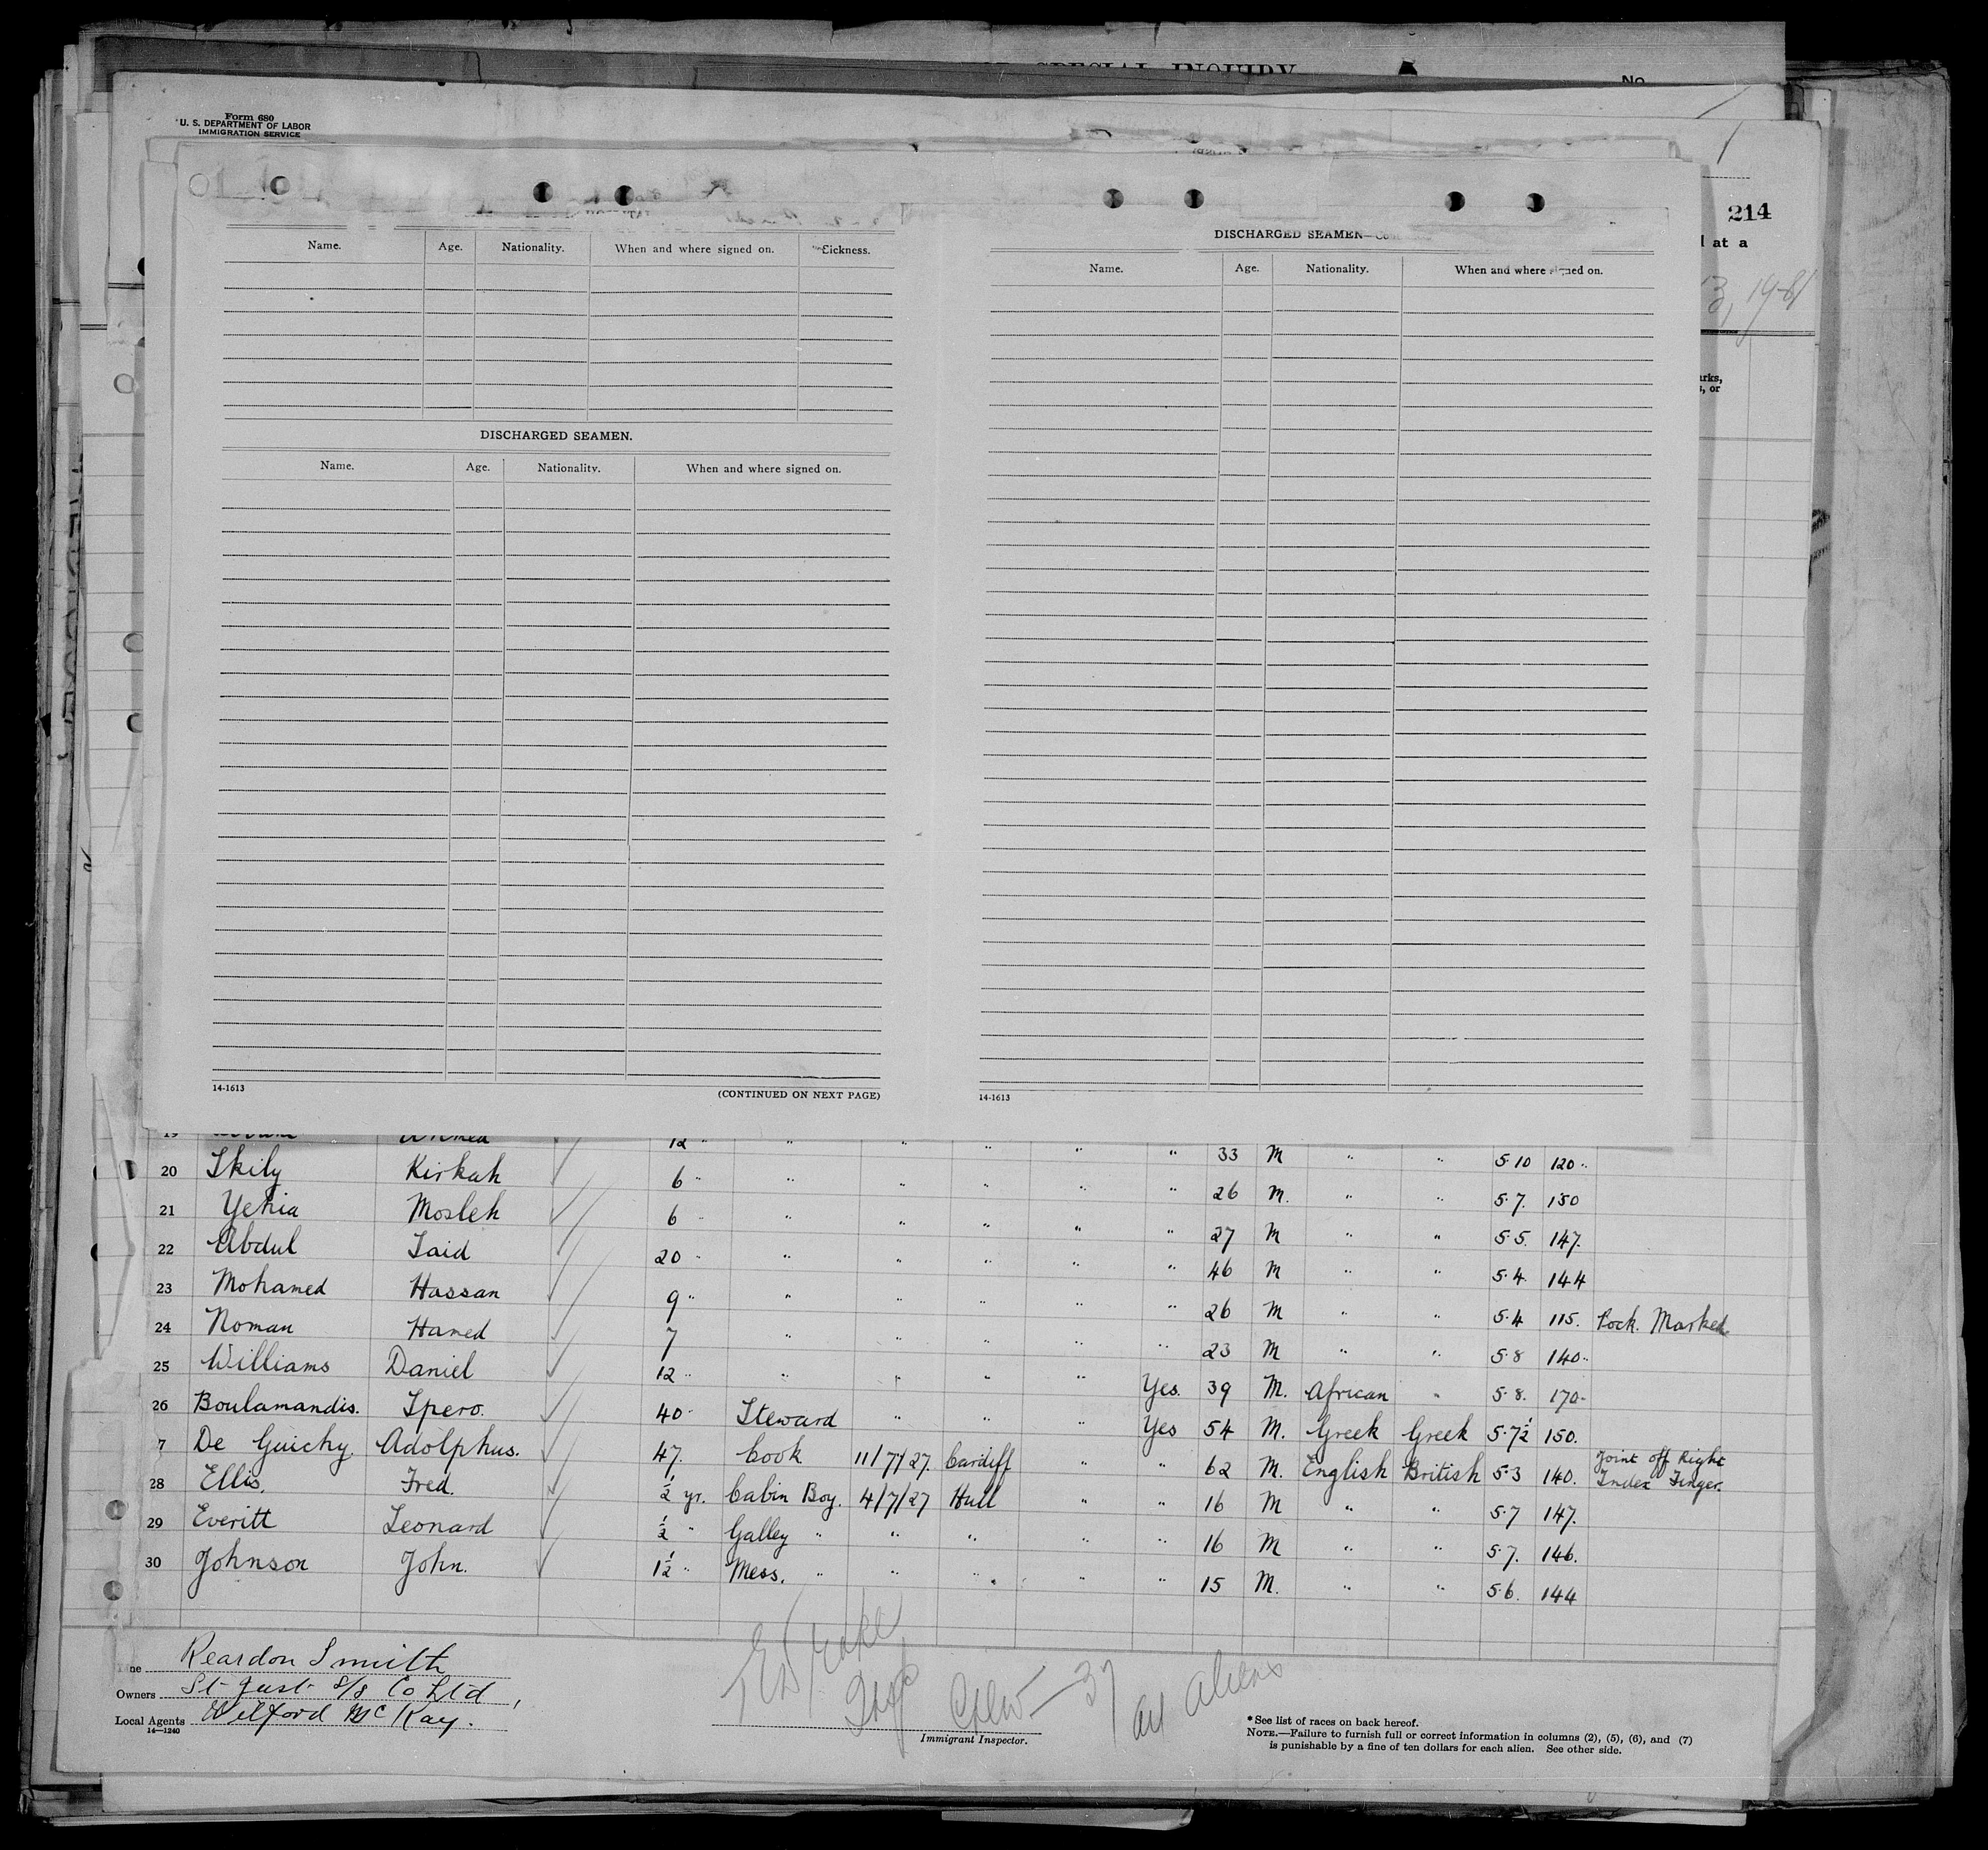 SPECIAL INQUIRY
No
Form 680
U. S. DEPARTMENT OF LABOR
IMMIGRATION SERVICE
214
at a
3, 19
arks,
or
Name. Age. Nationality. When and where signed on. Sickness.
DISCHARGED SEAMEN.
Name. Age. Nationality. When and where signed on.
14-1613 (CONTINUED ON NEXT PAGE)
DISCHARGED SEAMEN—Co
Name. Age. Nationality. When and where signed on.
14-1613
19 Ahmed 12 " " " " " " 33 M " " 5·10 120 "
20 Skily Kirkah 6 " " " " " " 26 M. " " 5·7. 150
21 Yehia Mosleh 6 " " " " " " 27 M " " 5·5. 147.
22 Abdul Said 20 " " " " " " 46 M " " 5·4. 144
23 Mohamed Hassan 9 " " " " " " 26 M " " 5·4 115. Pock. Marked
24 Noman Hamed 7 " " " " " 23 M " " 5·8 140 "
25 Williams Daniel 12 " " " " " Yes. 39 M. African " 5·8. 170-
26 Boulamandis. Spero. 40 " Steward " " " Yes 54 M. Greek Greek 5·7½ 150.
7 De Guichy. Adolphus. 47. Cook 11/7/27. Cardiff " " 62 M. English British 5·3 140. Joint off Right Index Finger.
28 Ellis. Fred. ½ yr. Cabin Boy. 4/7/27 Hull " " 16 M " " 5·7 147.
29 Everitt Leonard ½ " Galley " " " " " 16 M " " 5·7. 146.
30 Johnson John. 1½ " Mess. " " " " " 15 M. " " 5·6. 144
Line Reardon Smith
Owners St Just S/S Co Ltd,
Local Agents Wilford McKay.
14—1240
Insp Crew — 37
all aliens
Immigrant Inspector.
*See list of races on back hereof.
NOTE.—Failure to furnish full or correct information in columns (2), (5), (6), and (7)
is punishable by a fine of ten dollars for each alien. See other side.